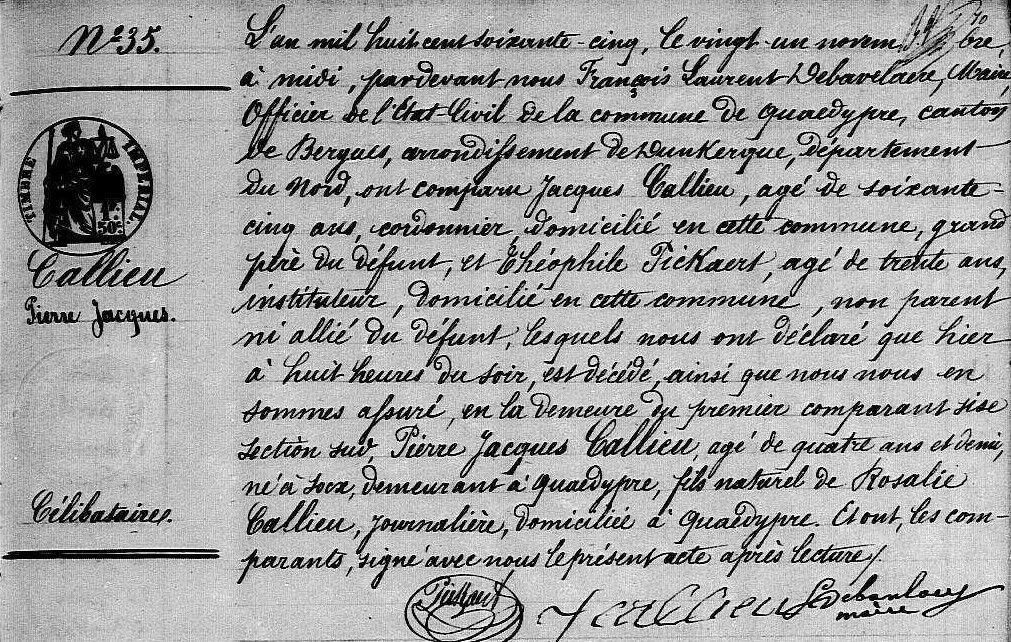 N° 35.
TIMBRE IMPERIAL
1f
50c
Callieu
Pierre Jacques.
Célibataire.
L'an mil huit cent soixante-cinq, le vingt-un novembre,
à midi, pardevant nous François Laurent Debavelaere, Maire,
Officier de l'Etat-Civil de la commune de Quaedypre, canton
de Bergues, arrondissement de Dunkerque, département
du Nord, ont comparu Jacques Callieu, agé de soixante-
cinq ans, cordonnier, domicilié en cette commune, grand
père du défunt, et Théophile Pickaert, agé de trente ans,
instituteur, domicilié en cette commune, non parent
ni allié du défunt, lesquels nous ont déclaré que hier
à huit heures du soir, est décédé, ainsi que nous nous en
sommes assuré, en la demeure du premier comparant sise
section sud, Pierre Jacques Callieu, agé de quatre ans et demi,
né à Socx, demeurant à Quaedypre, fils naturel de Rosalie
Callieu, journalière, domiciliée à Quaedypre. Et ont, les com-
parants, signé avec nous le présent acte après lecture.
Pickaert J Callieu
maire